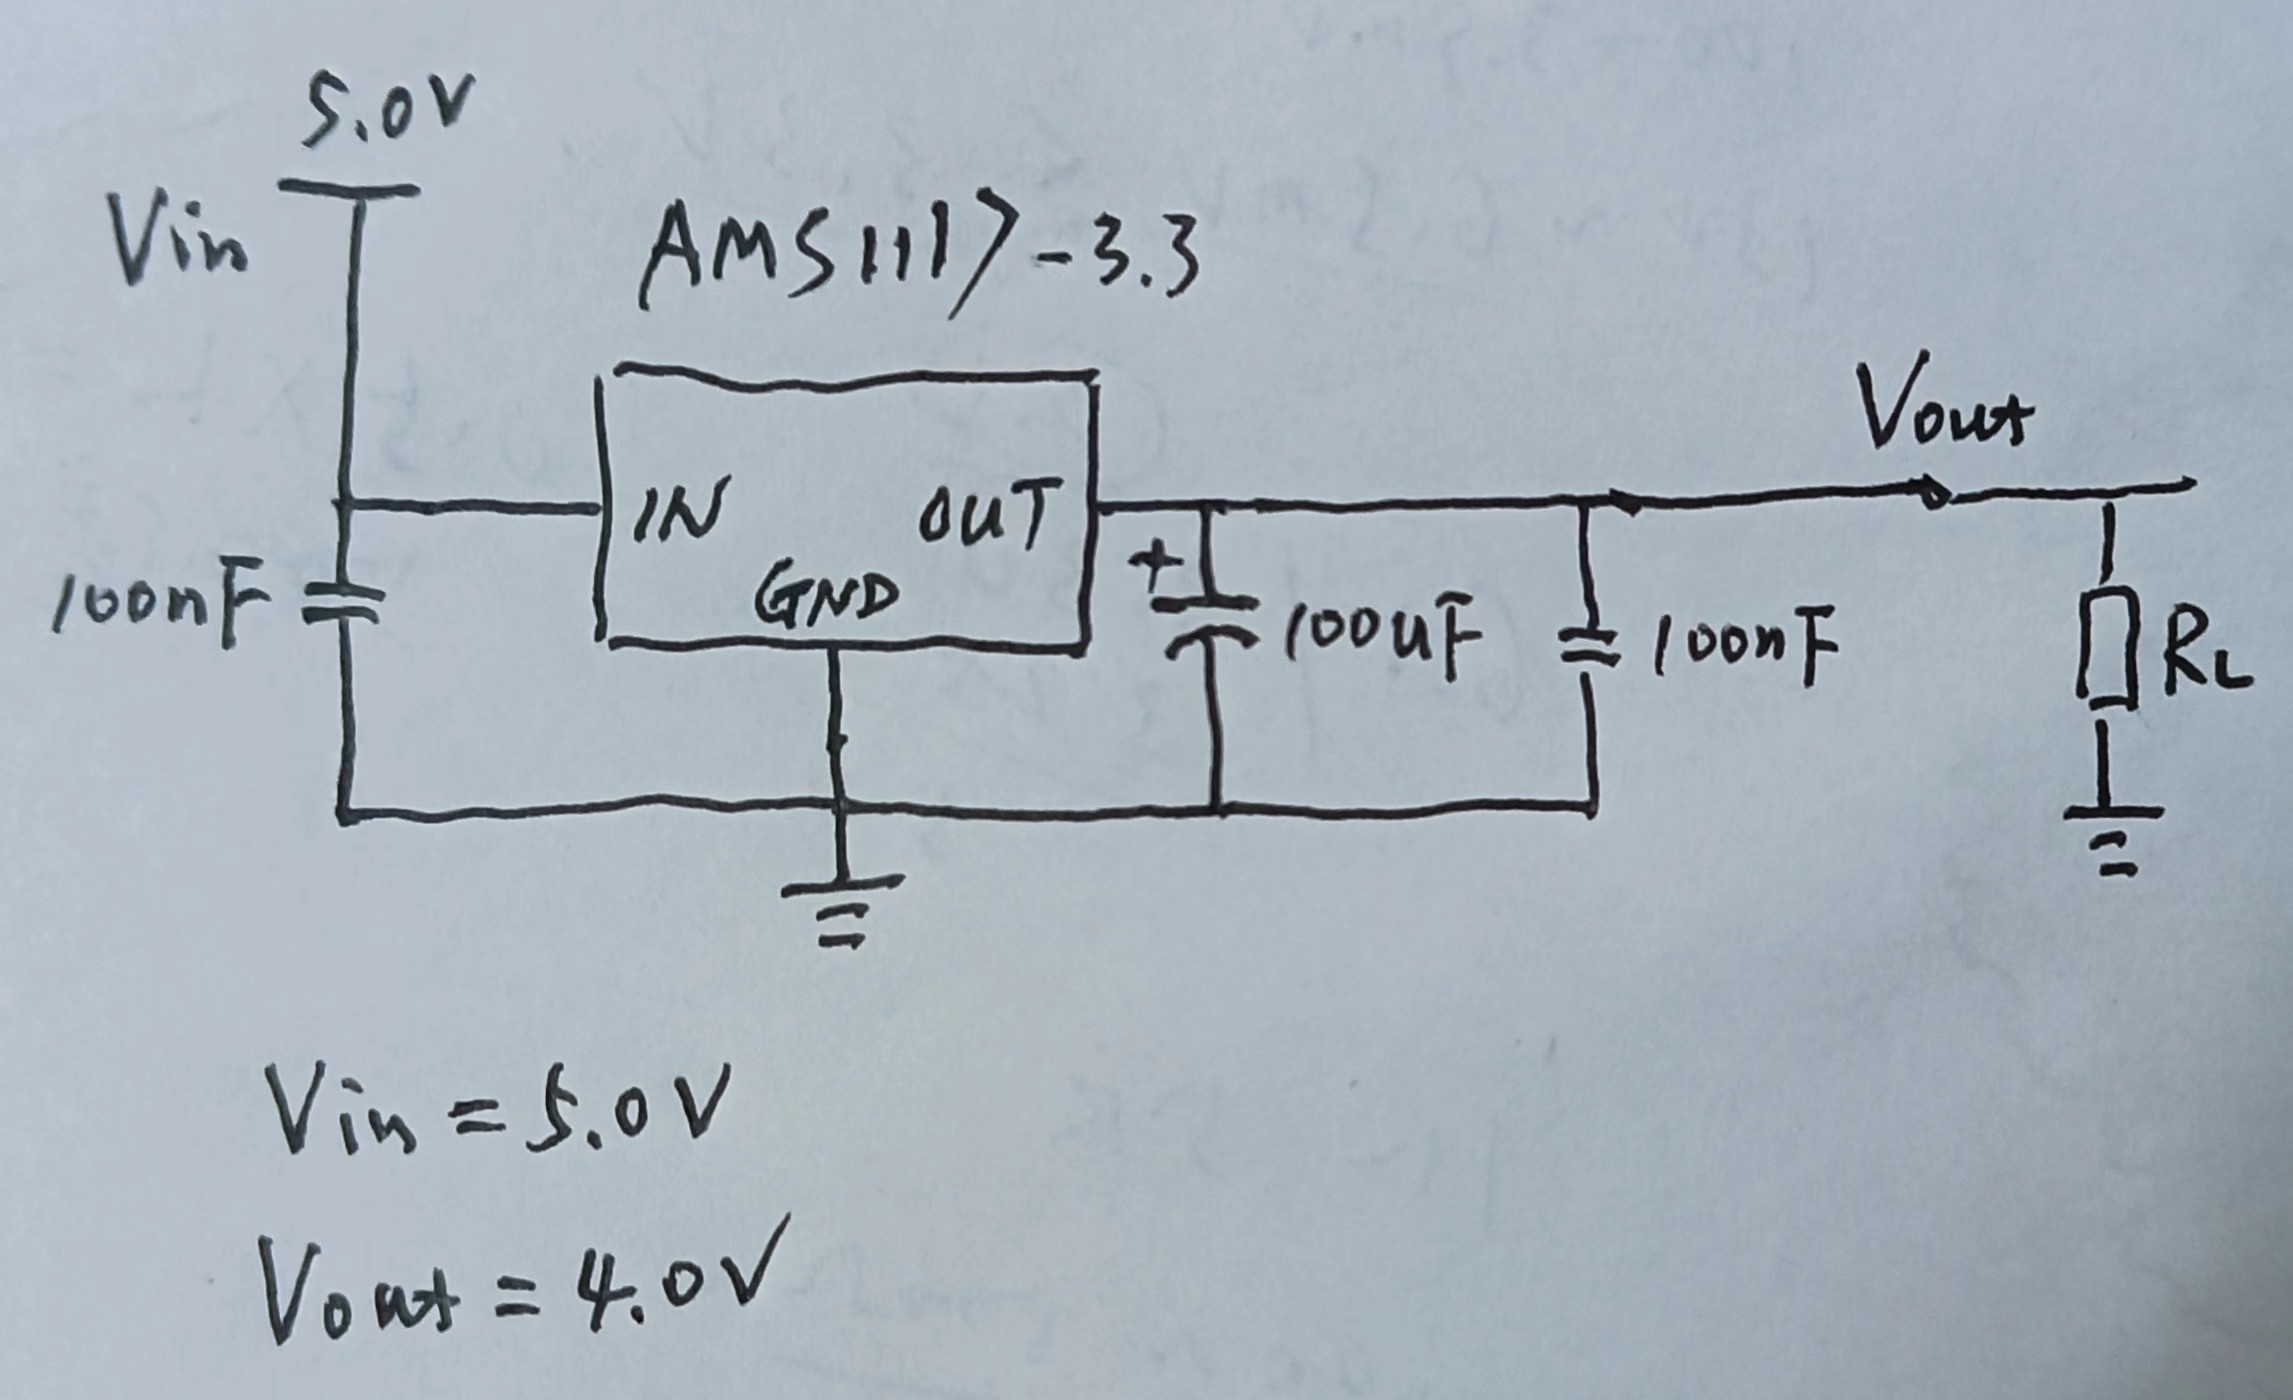 5.0V
Vin
AMS1117-3.3
Vout
IN
OUT
GND
+
100nF
100uF
100nF
RL
Vin = 5.0V
Vout = 4.0V